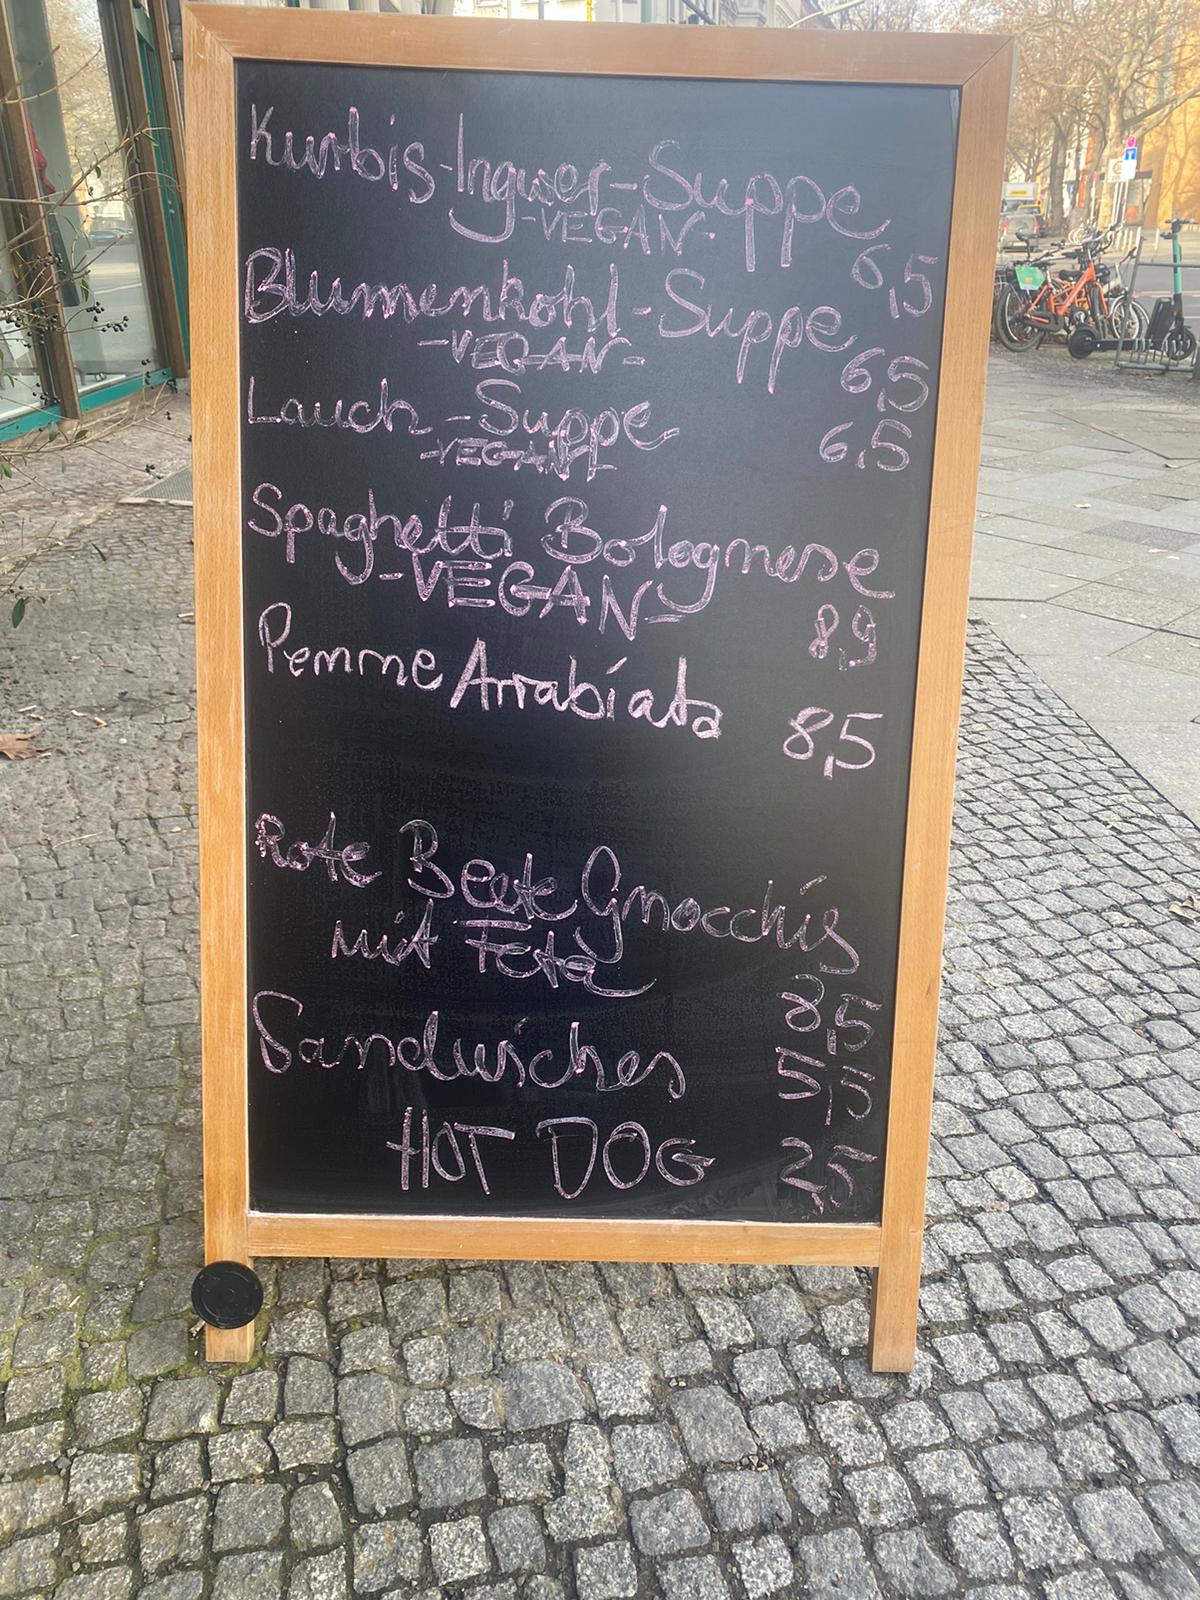 Kurbis-Ingwer-Suppe
-VEGAN-
6,5
Blumenkohl-Suppe
-VEGAN-
6,5
Lauch-Suppe
6,5
-VEGAN-
Spaghetti Bolognese
-VEGAN-
8,9
Pemme Arrabiata
8,5
Rote Beete Gnocchis
mit Feta
8,5
Sandwiches
5,5
HOT DOG 2,5